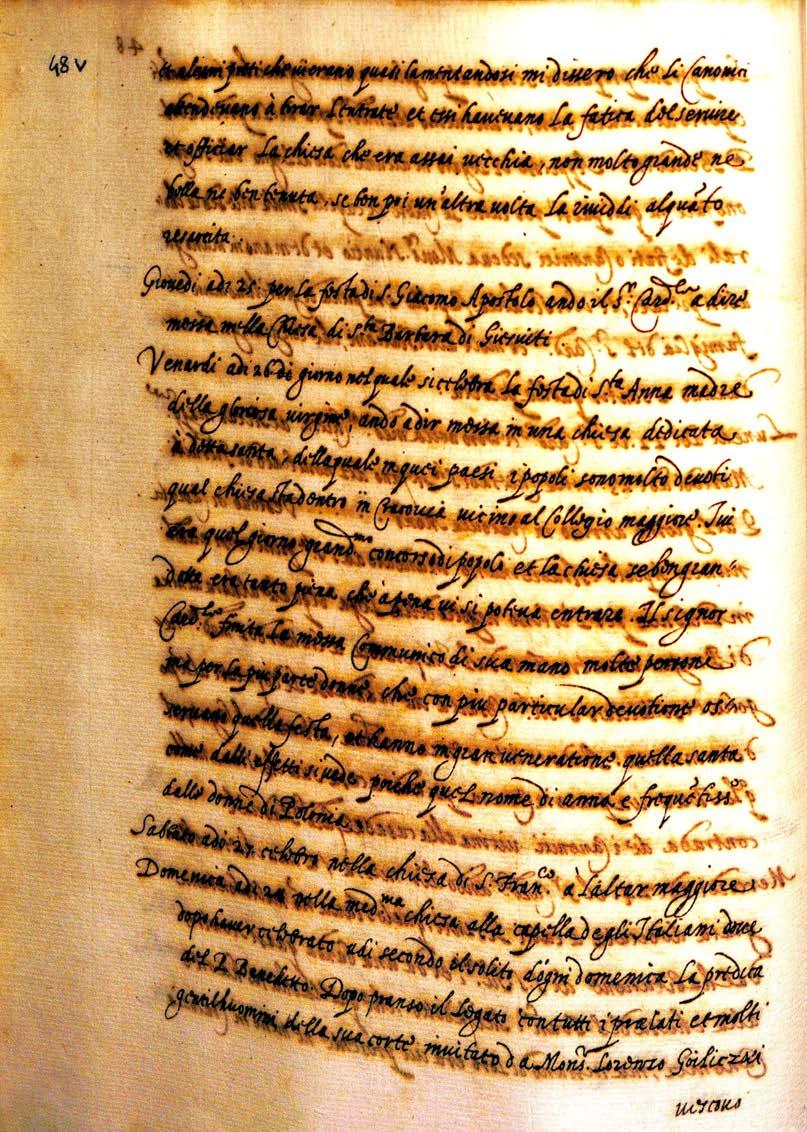 48 v
et alcuni preti che vi erano quasi lamentandosi mi dissero che li Canonici
attendevano à tirar l'entrate et essi havevano la fatica del servire
et officiar la chiesa che era assai vecchia, non molto grande ne
bella ne ben tenuta, se ben poi un'altra volta la rividdi alquãto
resarcita.
Giovedi adi 25. per la festa di S. Giacomo Apostolo andò il S.r Card.le a dire
messa nella Chiesa di S.ta Barbara di Giesuiti.
Venardi adi 26 di giorno nel quale si celebra la festa di S.ta Anna madre
della gloriosa virgine, andò a dir messa in una chiesa dedicata
à detta santa, della quale in quei paesi i popoli sono molto devoti
qual chiesa sta dentro in Cracovia vicino al Collegio maggiore. Ivi
era quel giorno grand.mo concorso di popolo et la chiesa se ben gran-
detta era tanto piena che apena vi si poteva entrare. Il signor
Card.le finita la messa Communicò di sua mano molte persone
ma per la più parte donne, che con piu particular devotione os-
servano quella festa, et hanno in gran veneratione quella santa
come dalli effetti si vede, poiche quel nome di anna e frequẽtiss.o
dalle donne di Polonia.
Sabbato adi 27 celebrò nella chiesa di S. Fran.co à l'altar maggiore.
Domenica adi 28 nella med.ma chiesa alla capella degli Italiani dove
dopo haver celebrato udi secondo il solito d'ogni domenica la predica
del P. Benedetto. Dopo pranso il Legato con tutti i prelati et molti
gentilhuomini della sua corte invitato da Mons.r Lorenzo
vescovo